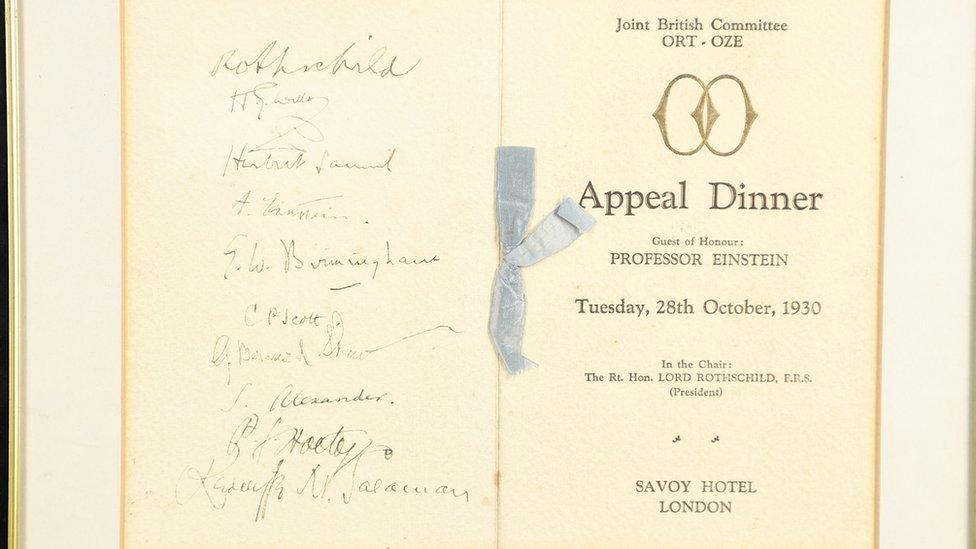 Rothschild
H. G. Wells
Herbert Samuel
A. Einstein.
E. W. Birmingham
C P Scott
G. Bernard Shaw
S. Alexander.
N. Salaman
Joint British Committee
ORT - OZE
Appeal Dinner
Guest of Honour:
PROFESSOR EINSTEIN
Tuesday, 28th October, 1930
In the Chair:
The Rt. Hon. LORD ROTHSCHILD, F.R.S.
(President)
SAVOY HOTEL
LONDON